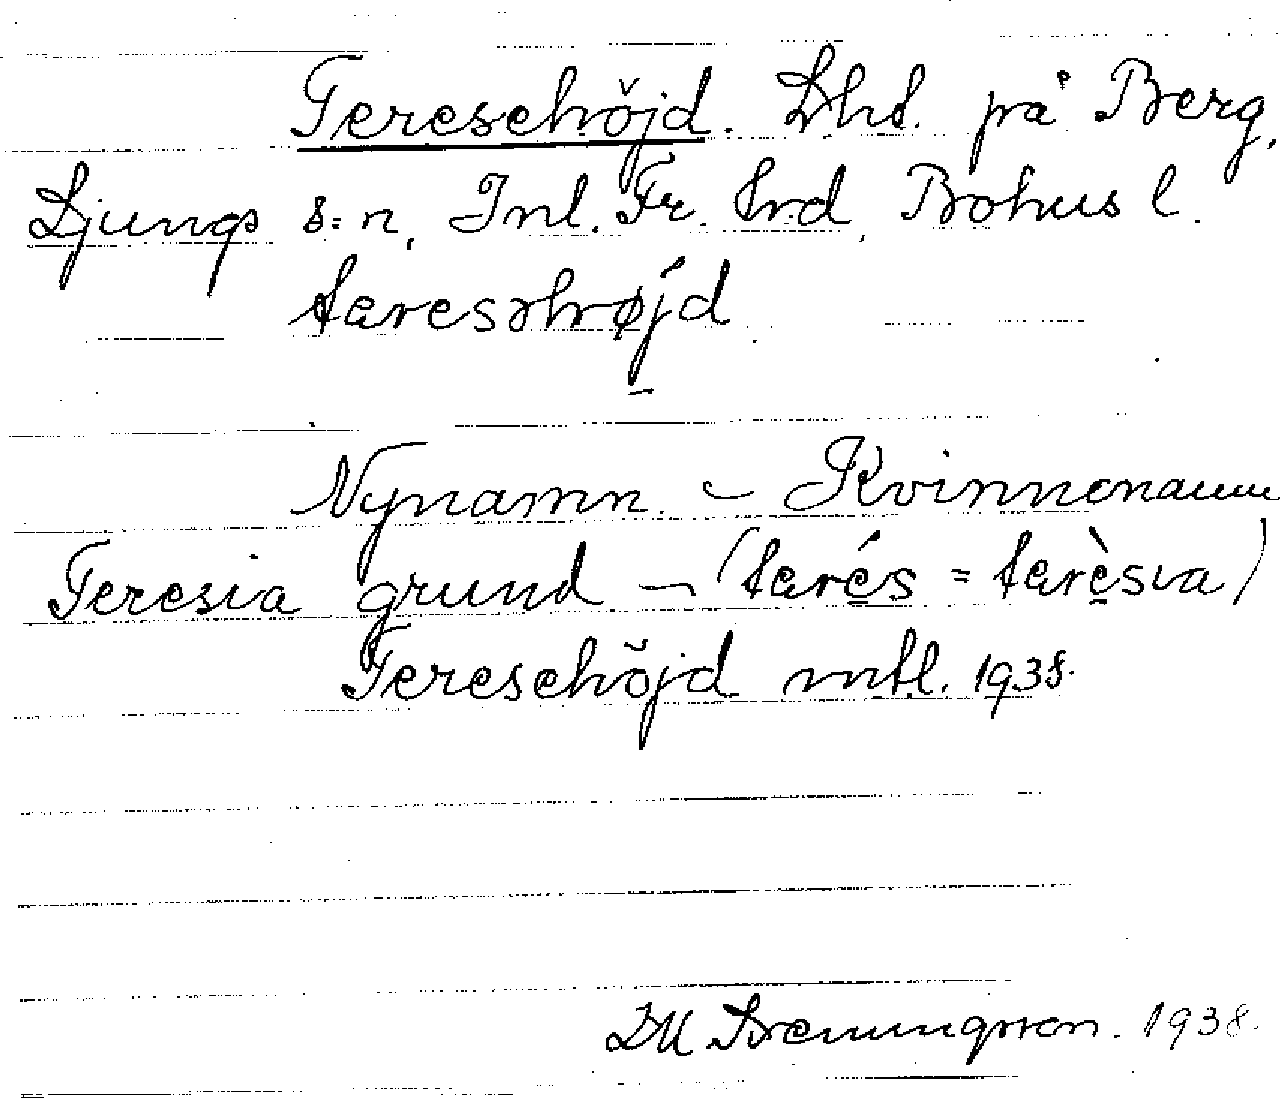 Teresehöjd. Lht. på Berg,
Ljungs s:n, Inl. Fr. hrd, Bohus l.
tæresəhøjd
Nynamn – Kvinnonamn
Teresia grund – (tærés = tærèsia)
Teresehöjd mtl. 1938.
1938.